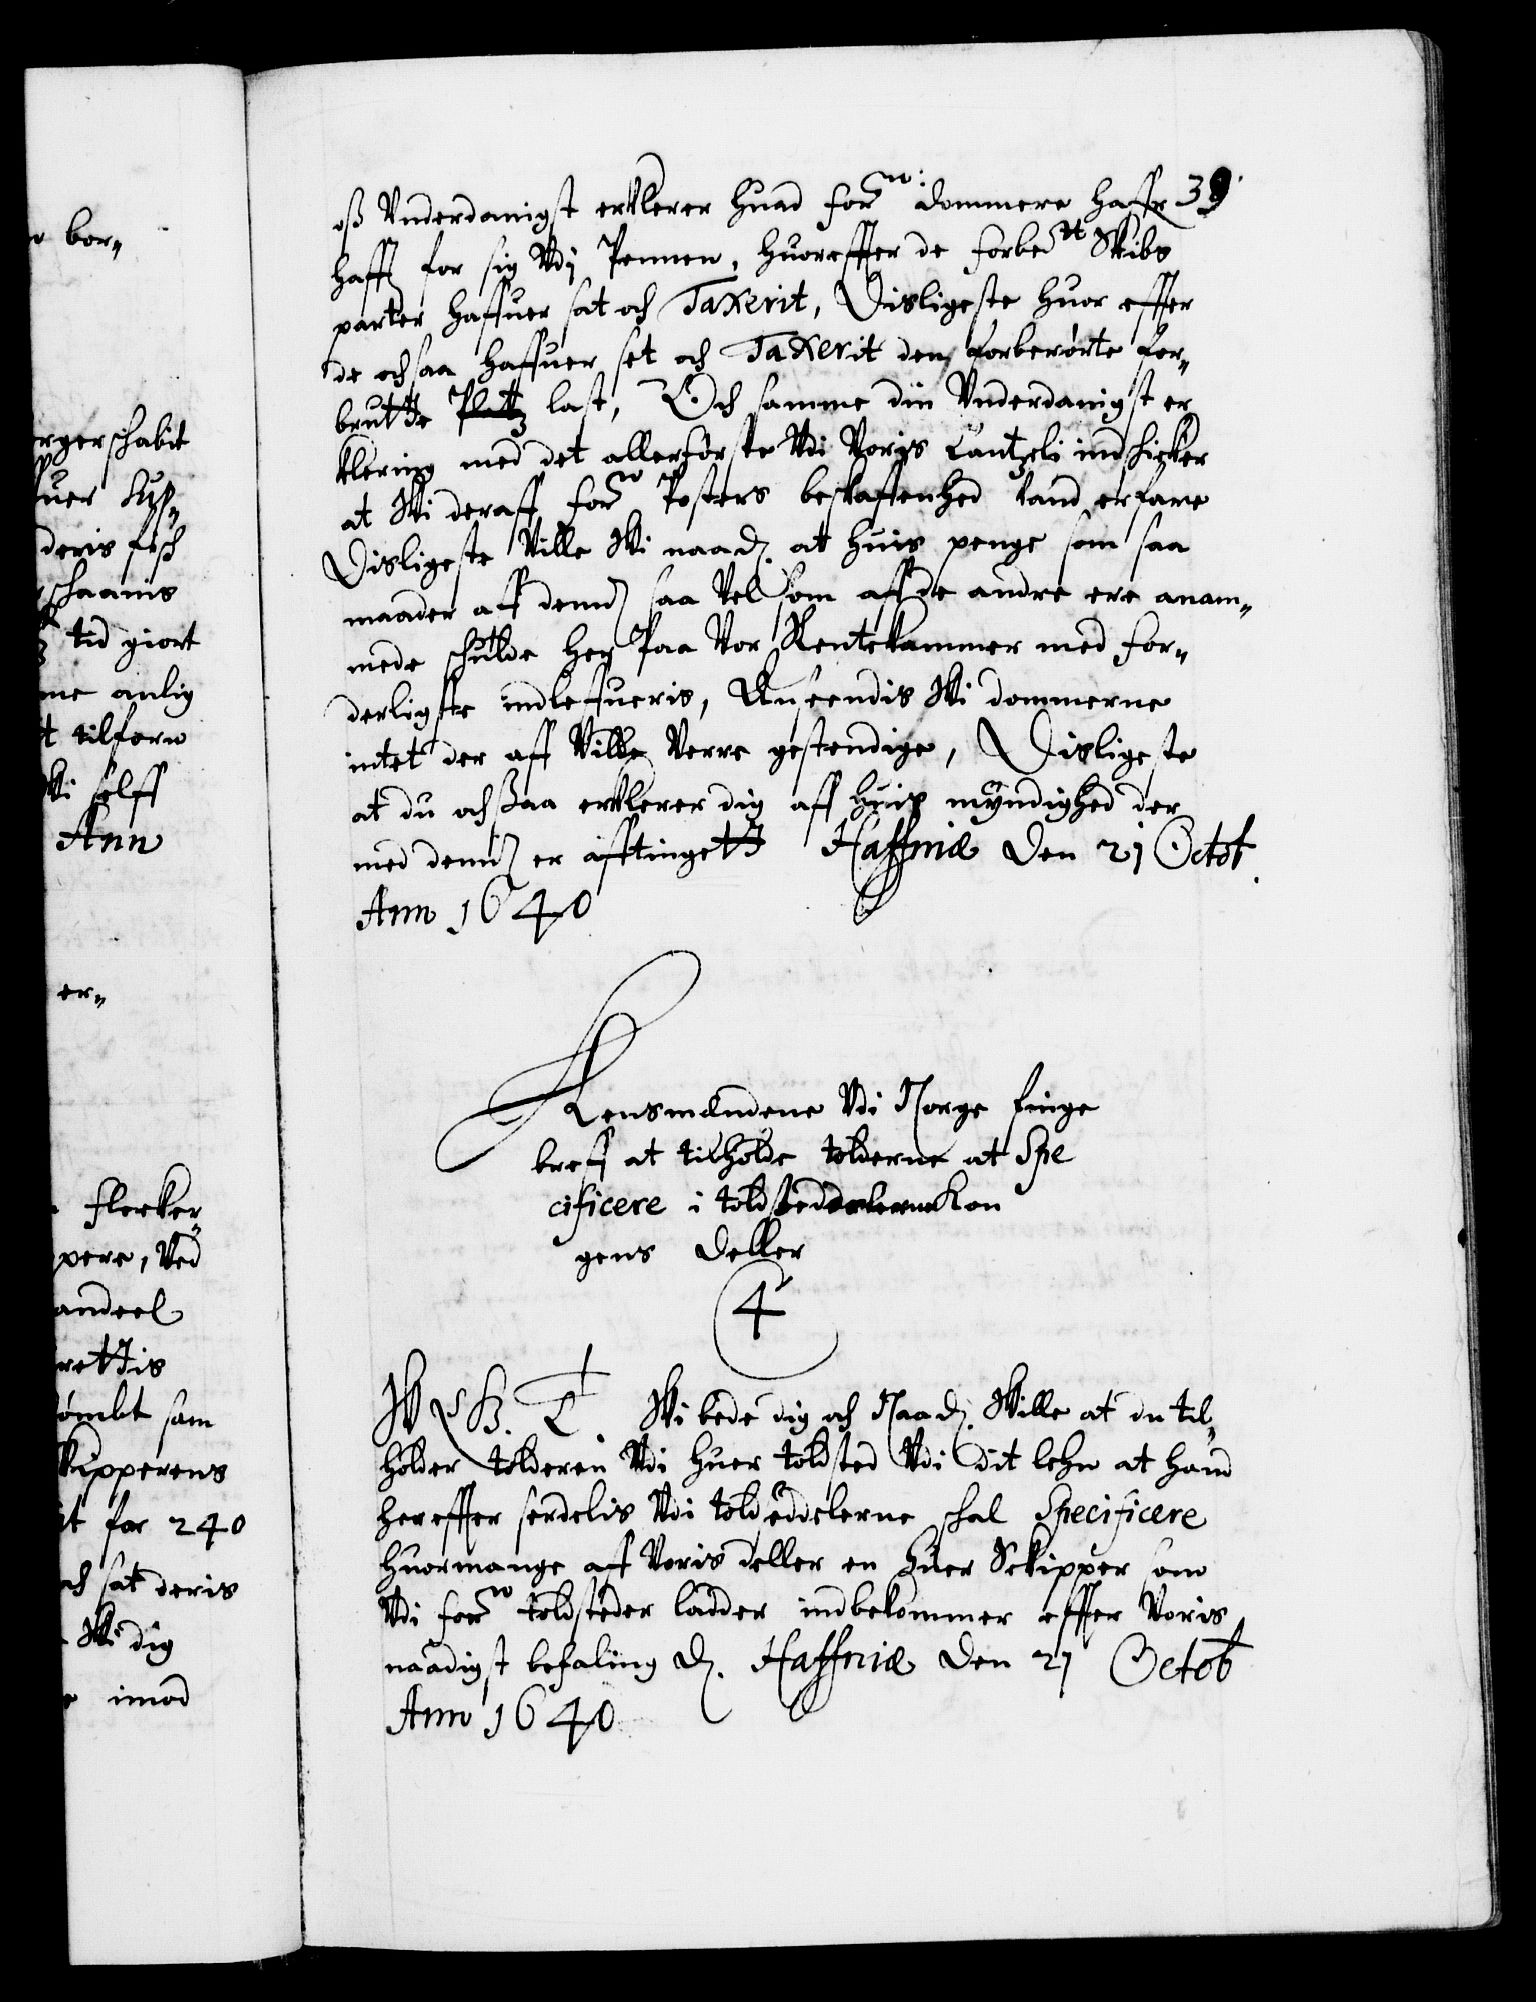 bor„
rgerschabit
uer
deris fisch
schaanis
tid giort
me anlig
tilforn
Wi selff
Ann
er„
flerker„
pere, Ved
andeel
rettis
ømbt sam
Skipperens
it for 240
och sat deris
Wi dig
imod
39.
oß Vnderdanigst erklerer huad forne: dommere haffr
hafft for sig Vdj Pennen, huoreffter de forbete Skibs
parter haffuer sat och Taxerit, Disligeste huor effter
de ochsaa haffuer set och Taxerit den forberørte for„
brutte Platz last, Och samme din Vnderdanigst er
klering med det allerførste Vdi Voris Cantzeli indschicker
at Wi deraff forne Posters beskaffenhed kand erfare
Disligeste Ville Wi naad. at huis penge som saa
maader aff dennd saa Vel som aff de andre ere anam„
mede schulde her Paa Vor Rentekammer med for„
derligste indleffueris, Anseendis Wi dommerne
intet der aff Ville Verre gestendige, Disligeste
at du ochsaa erklerer dig aff huis myndighed der
med dennd er afftingett Haffniæ Den 21 Octob.
Ann 1640
Lensmændene Vdi Norge finge
breff at tilholde tolderne at Spe
cificere i toldseddelerne Kon
gens deller
4
Wi bede dig och Naad. Wille at du til„
holder tolderen Vdi huer toldsted Vdi dit lehn at hand
hereffter serdelis Vdi toldseddelerne schal Specificere
huormange aff Voris deller en huer Schipper som
Vdi forne toldsteder ladder indbekommer effter Voris
naadigst befaling D. Haffniæ Den 21 Octob
Ann 1640